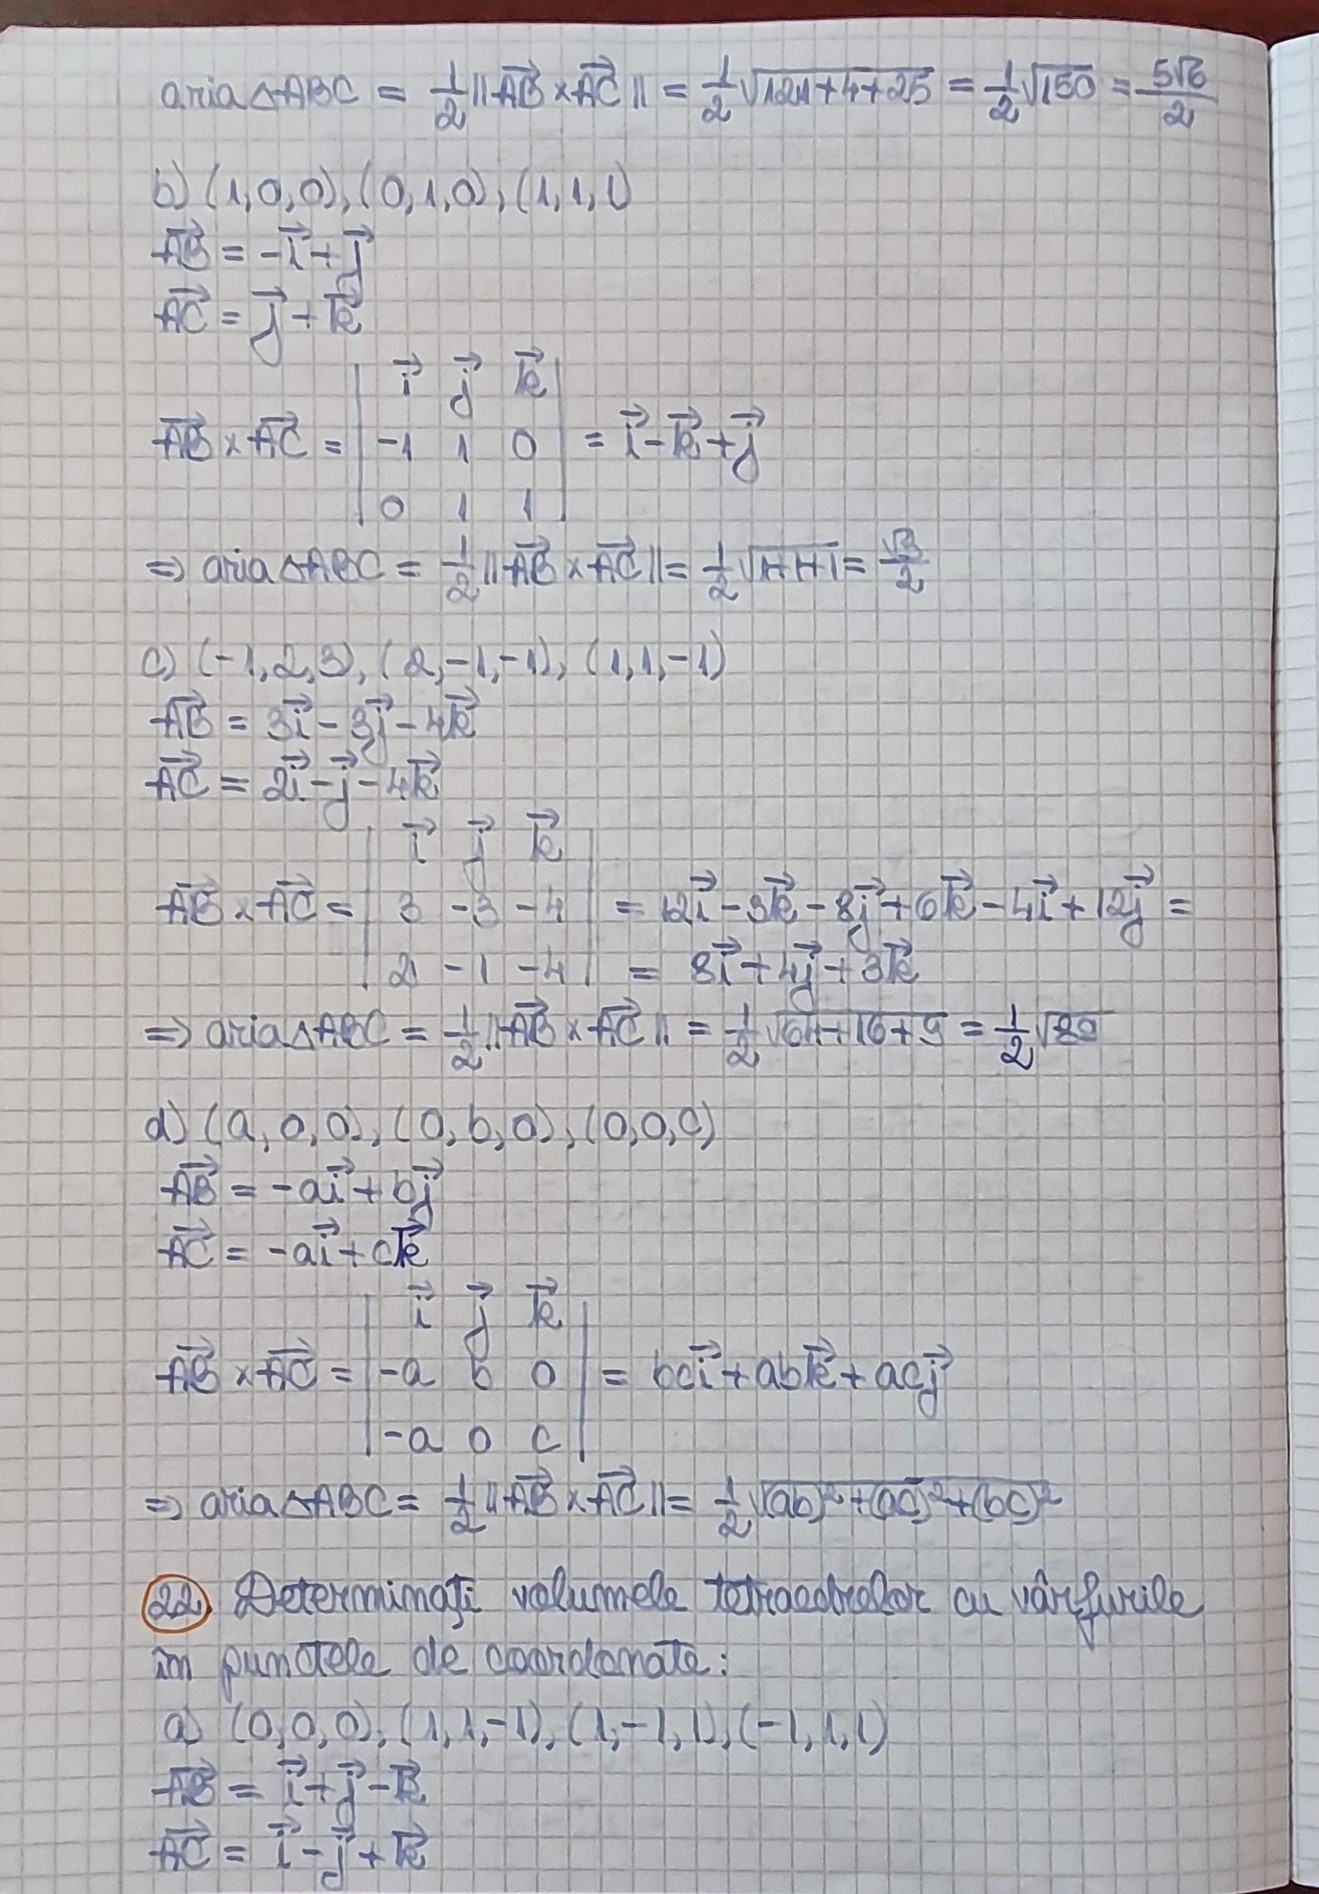 aria△ABC = 1/2 ||AB⃗ × AC⃗|| = 1/2 √(121+4+25) = 1/2 √150 = 5√6/2
b) (1,0,0), (0,1,0), (1,1,1)
AB⃗ = -i⃗ + j⃗
AC⃗ = j⃗ + k⃗
i⃗ j⃗ k⃗
AB⃗ × AC⃗ = | -1 1 0 | = i⃗ - k⃗ + j⃗
0 1 1
⇒ aria△ABC = 1/2 ||AB⃗ × AC⃗|| = 1/2 √(1+1+1) = √3/2
c) (-1,2,3), (2,-1,-1), (1,1,-1)
AB⃗ = 3i⃗ - 3j⃗ - 4k⃗
AC⃗ = 2i⃗ - j⃗ - 4k⃗
i⃗ j⃗ k⃗
AB⃗ × AC⃗ = | 3 -3 -4 | = 12i⃗ - 3k⃗ - 8j⃗ + 6k⃗ - 4i⃗ + 12j⃗ =
2 -1 -4 = 8i⃗ + 4j⃗ + 3k⃗
⇒ aria△ABC = 1/2 ||AB⃗ × AC⃗|| = 1/2 √(64+16+9) = 1/2 √89
d) (a,0,0), (0,b,0), (0,0,c)
AB⃗ = -ai⃗ + bj⃗
AC⃗ = -ai⃗ + ck⃗
i⃗ j⃗ k⃗
AB⃗ × AC⃗ = | -a b 0 | = bci⃗ + abk⃗ + acj⃗
-a 0 c
⇒ aria△ABC = 1/2 ||AB⃗ × AC⃗|| = 1/2 √((ab)²+(ac)²+(bc)²)
22 Determinați volumele tetraedrelor cu vârfurile
în punctele de coordonate:
a) (0,0,0), (1,1,-1), (1,-1,1), (-1,1,1)
AB⃗ = i⃗ + j⃗ - k⃗
AC⃗ = i⃗ - j⃗ + k⃗